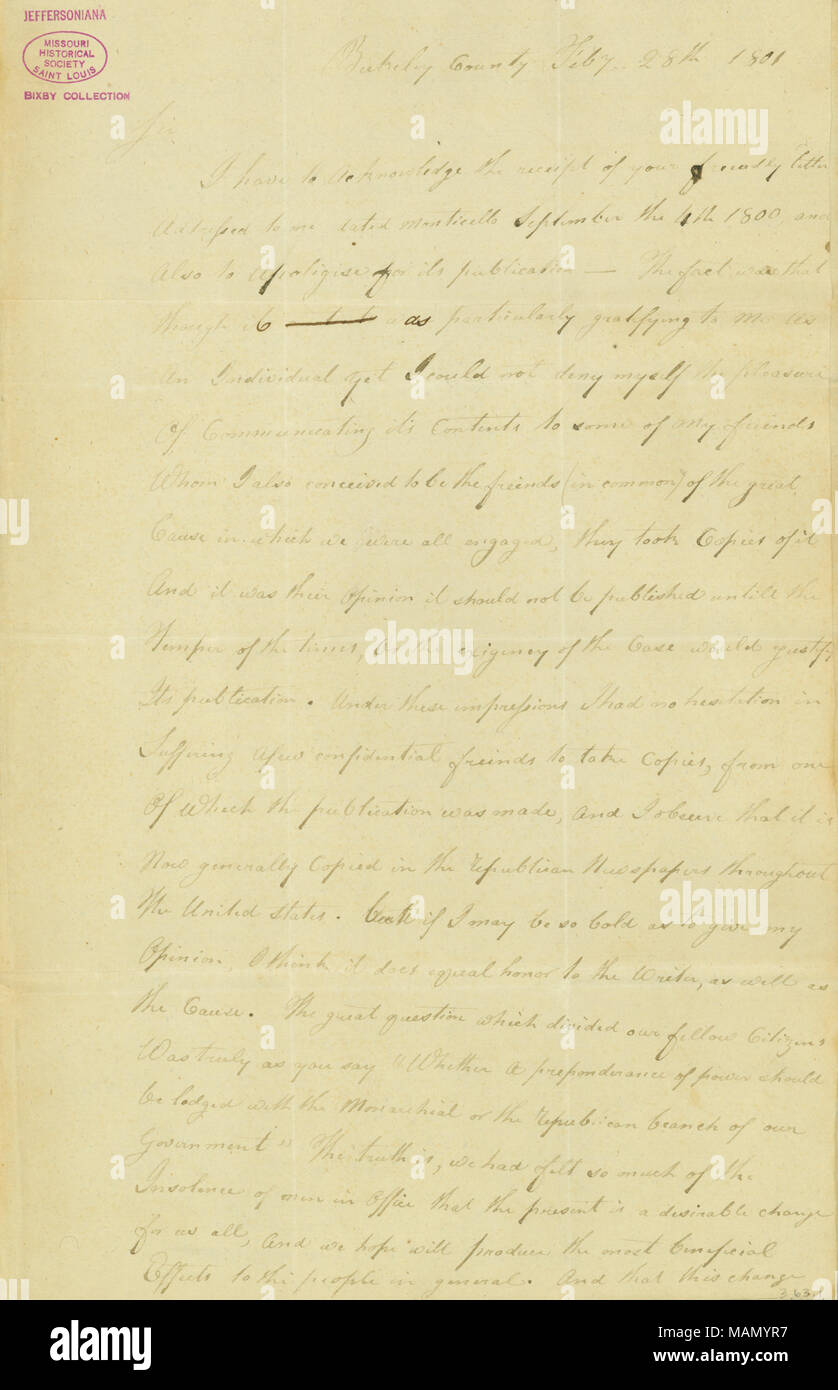 JEFFERSONIANA
MISSOURI
HISTORICAL
SOCIETY
SAINT LOUIS
BIXBY COLLECTION
Berkeley County Feby 28th 1801
Sir
I have to Acknowledge the receipt of your friendly letter
Addressed to me dated Monticello September the 4th 1800, and
Also to apoligise for its publication — The fact was that
though it was particularly gratifying to me As
An Individual yet I could not deny myself the pleasure
Of Communicating its Contents to some of my friends
Whom I also conceived to be the freinds (in common) of the great
Cause in which we were all engaged, they took Copies of it
And it was their Opinion it should not be published untill the
Temper of the times, Or the exigency of the Case would justify
Its publication. Under these impressions I had no hesitation in
Suffering a few confidential freinds to take Copies, from one
Of which the publication was made, And I observe that it is
Now generally Copied in the Republican Newspapers throughout
the United States. But if I may be so bold as to give my
Opinion, I think it does equal honor to the Writer, as well as
the Cause. The great question which divided our fellow Citizens
Was truly as you say "Whether a preponderance of power should
be lodged with the Monarchial or the Republican branch of our
Government" The truth is, we had felt so much of the
Insolence of men in Office that the present is a desirable change
for us all, And we hope will produce the most beneficial
Effects to the people in general. And that this change
alamy
Image ID: MAMYR7
www.alamy.com